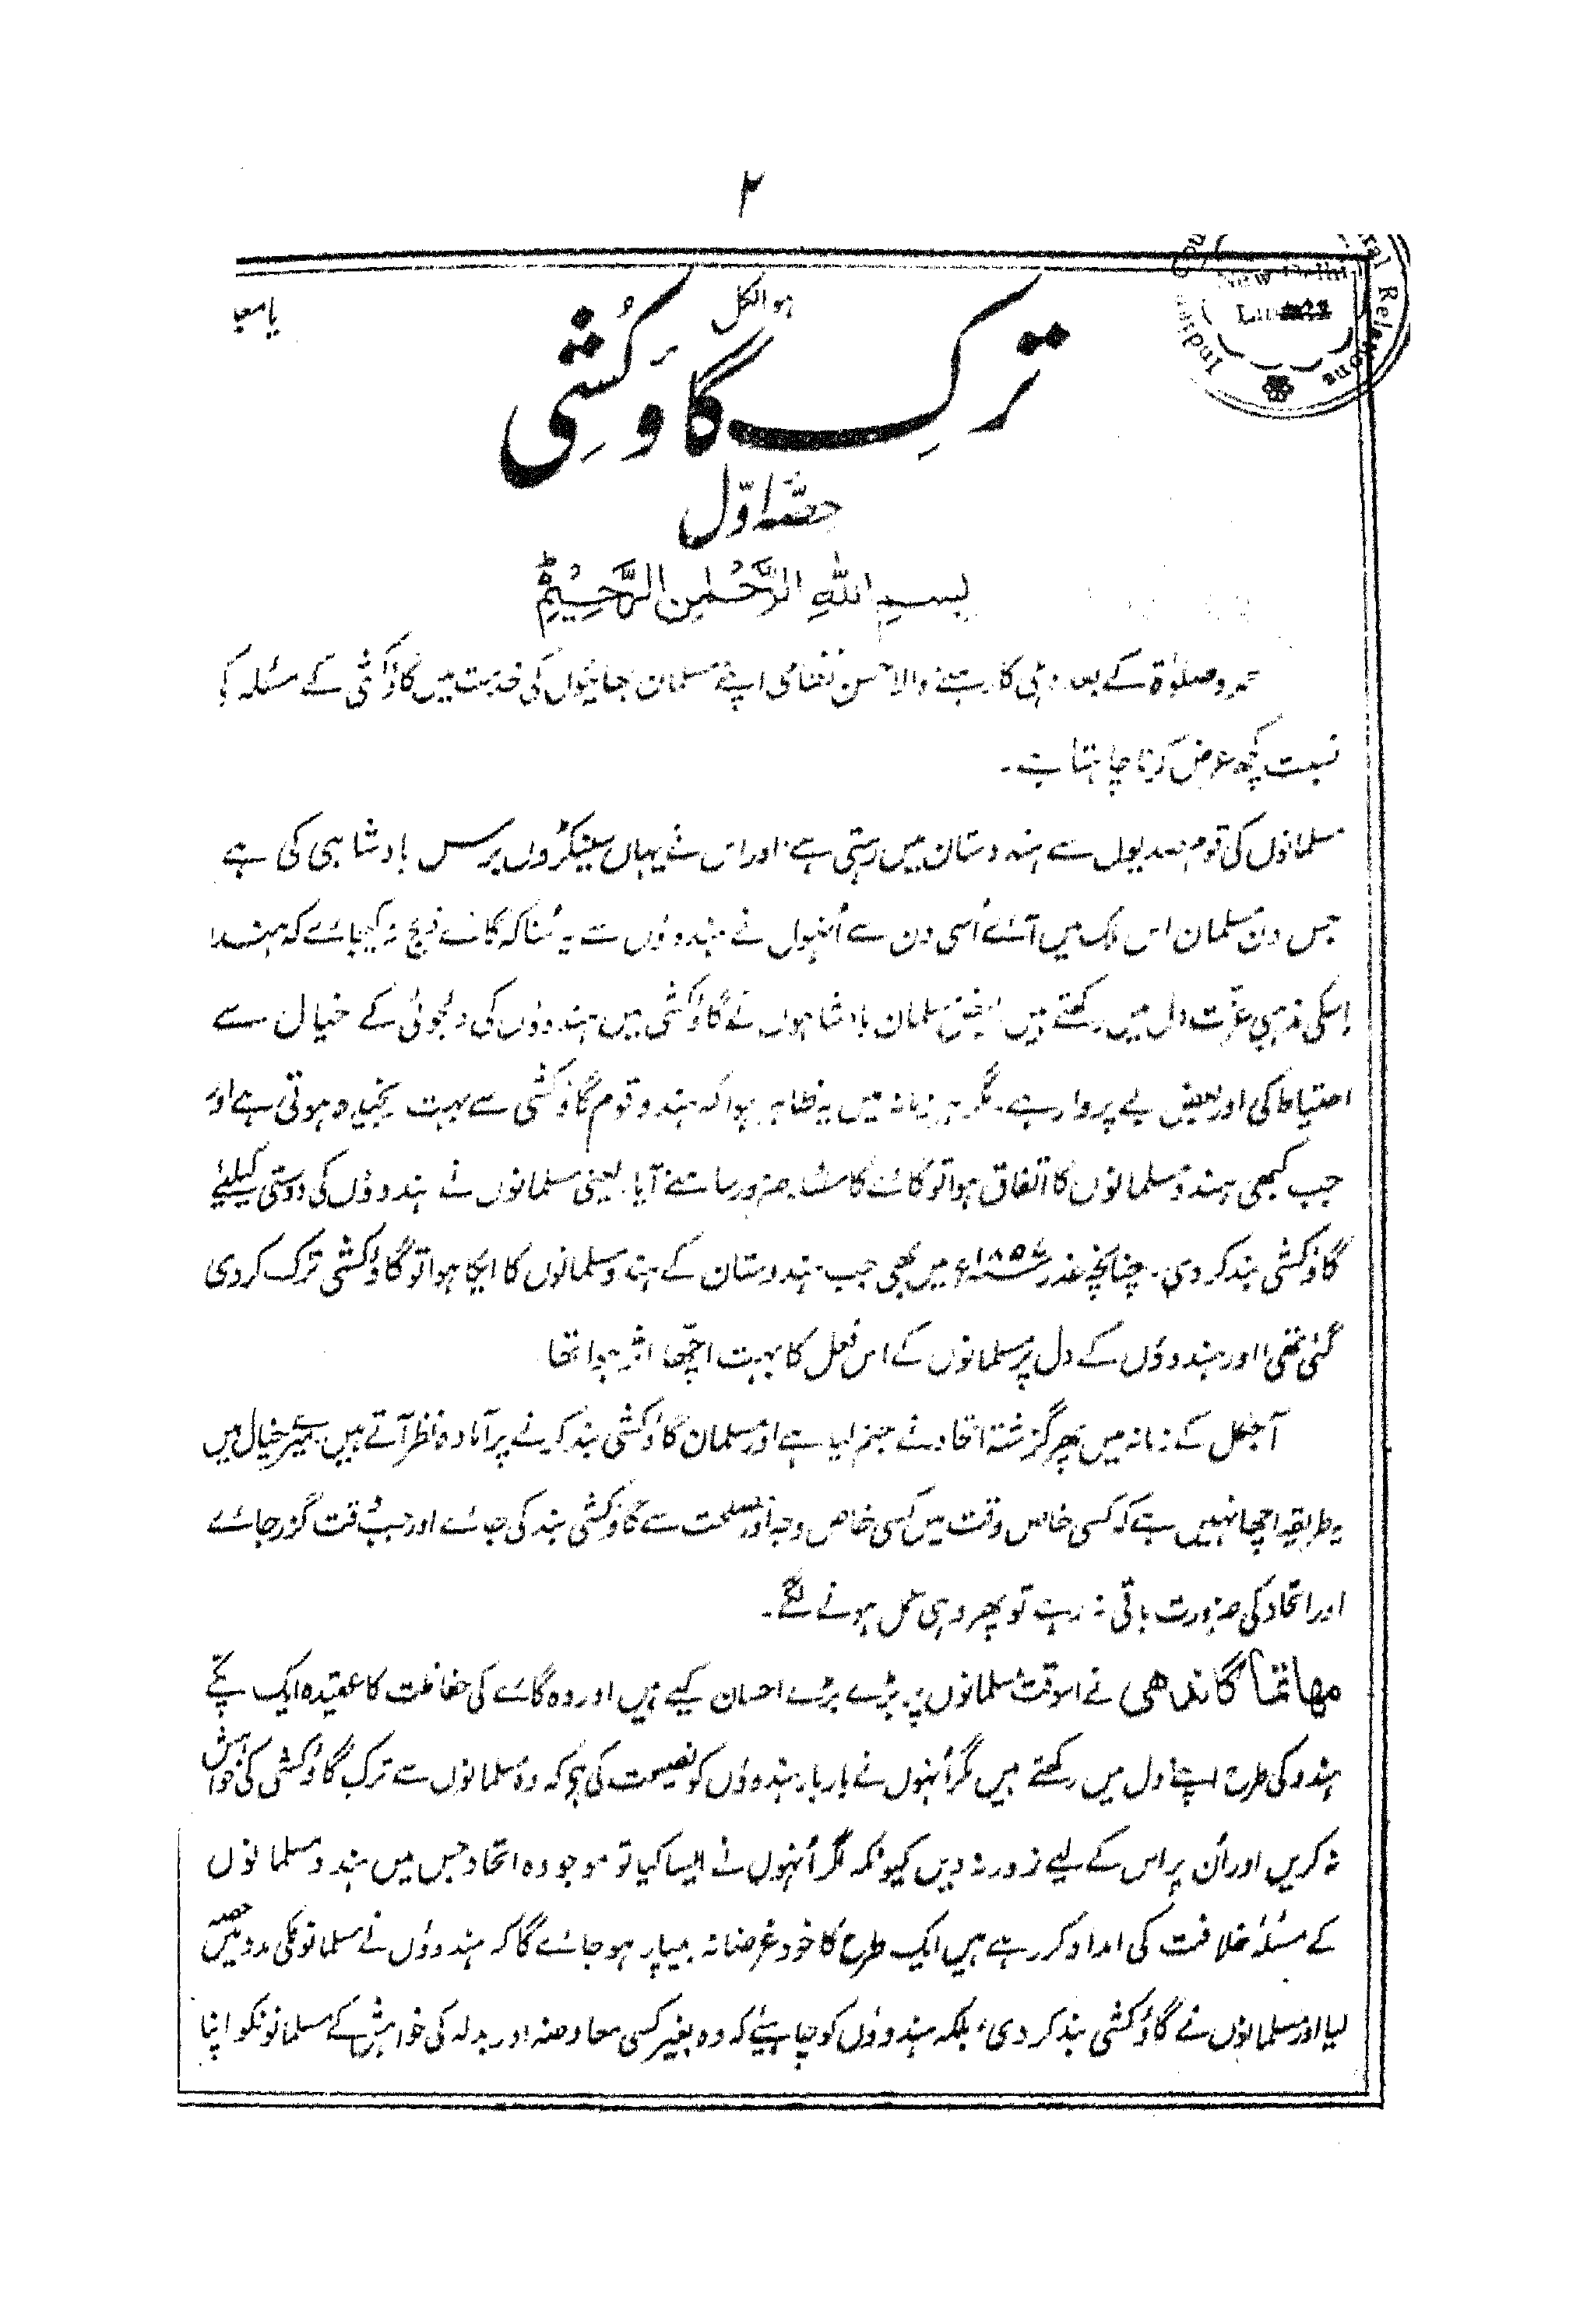 ۲
ہو الکل
یا معبا
ترکِ گاؤ کُشی
حصّہ اوّل
بِسمِ اللہِ الرَّحْمٰنِ الرَّحِیْمِ
حمد و صلوٰۃ کے بعد دہلی کا رہنے والا حسن نظامی اپنے مسلمان بھائیوں کی خدمت میں گاؤکُشی کے مسئلہ کی
نسبت کچھ عرض کرنا چاہتا ہے۔
مسلمانوں کی قوم صدیوں سے ہندوستان میں رہتی ہے اور اس نے یہاں سینکڑوں برس بادشاہی کی ہے
جس دن مسلمان اس ملک میں آئے اُسی دن سے اُنہوں نے ہندوؤں سے یہ سُنا کہ گائے ذبح نہ کیجائے کہ ہندو
اسکی مذہبی عزّت دل میں رکھتے ہیں بعض مسلمان بادشاہوں نے گاؤکشی میں ہندوؤں کی دلجوئی کے خیال سے
احتیاط کی اور بعض بے پروا رہے۔ مگر ہر زمانہ میں یہ ظاہر ہوا کہ ہندو قوم گاؤکشی سے بہت رنجیدہ ہوتی ہے اور
جب کبھی ہندو مسلمانوں کا اتفاق ہوا تو گائے کا مسئلہ ضرور سامنے آیا۔ یعنی مسلمانوں نے ہندوؤں کی دوستی کیلئے
گاؤکشی بند کر دی۔ چنانچہ غدر ۱۸۵۷ء میں بھی جب ہندوستان کے ہندو مسلمانوں کا ایکا ہوا تو گاؤکشی ترک کر دی
گئی تھی اور ہندوؤں کے دل پر مسلمانوں کے اس فعل کا بہت اچھا اثر ہوا تھا
آجکل کے زمانہ میں پھر گزشتہ اتحاد نے جنم لیا ہے اور مسلمان گاؤکشی بند کرنے پر آمادہ نظر آتے ہیں۔ میرے خیال میں
یہ طریقہ اچھا نہیں ہے کہ کسی خاص وقت میں کسی خاص وجہ اور مصلحت سے گاؤکشی بند کی جائے اور جب وقت گزر جائے
اور اتحاد کی ضرورت باقی نہ رہے تو پھر وہی عمل ہونے لگے۔
مہاتما گاندھی نے اسوقت مسلمانوں پر بڑے بڑے احسان کیے ہیں اور وہ گائے کی حفاظت کا عقیدہ ایک پکّے
ہندو کی طرح اپنے دل میں رکھتے ہیں مگر اُنہوں نے بار بار ہندوؤں کو نصیحت کی ہے کہ وہ مسلمانوں سے ترک گاؤکشی کی خواہش
نہ کریں اور اُن پر اس کے لیے زور نہ دیں کیونکہ اگر اُنہوں نے ایسا کیا تو موجودہ اتحاد جس میں ہندو مسلمانوں
کے مسئلۂ خلافت کی امداد کر رہے ہیں ایک طرح کا خود غرضانہ بیپار ہو جائے گا کہ ہندوؤں نے مسلمانونکی مدد میں حصہ
لیا اور مسلمانوں نے گاؤکشی بند کر دی، بلکہ ہندوؤں کو چاہیئے کہ وہ بغیر کسی معاوضہ اور بدلہ کی خواہش کے مسلمانونکو اپنا